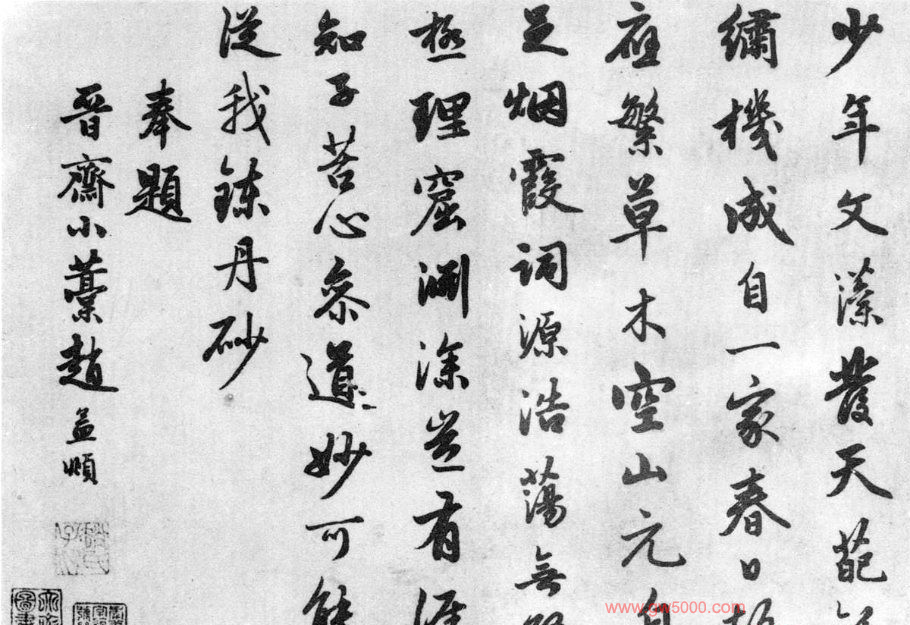 少年文藻發天葩
繡機成自一家春日
應繁草木空山元自
足烟霞詞源浩蕩無
極理窟淵深豈有涯
知子苦心參道妙可能
從我鍊丹砂
奉題
晉齋小藁趙孟頫
www.gw5000.com